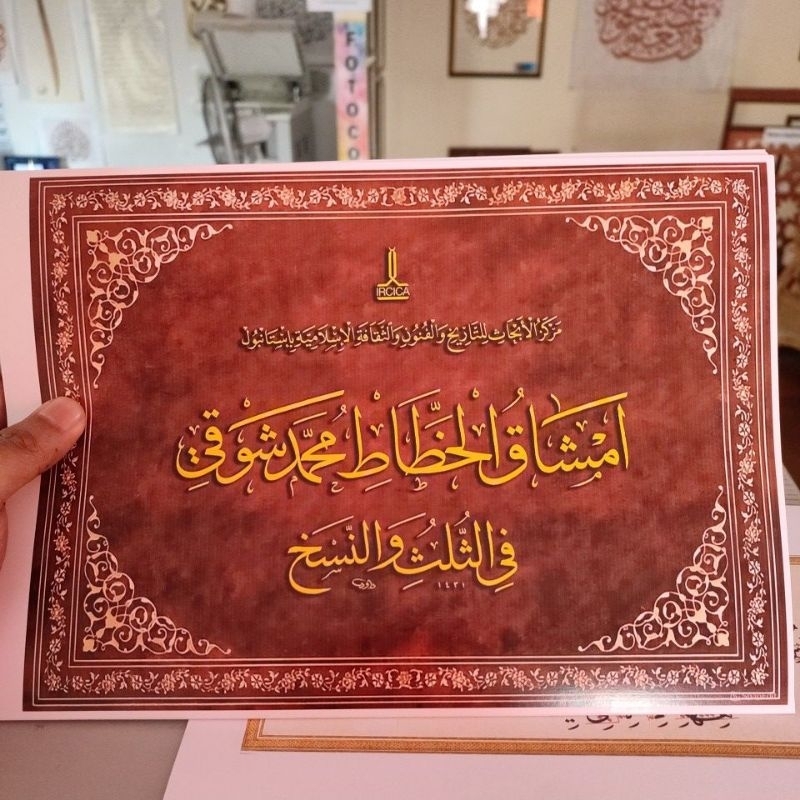 FOTOCO
IRCICA
مَرْكَزُ الْأَبْحَاثِ لِلتَّارِيخِ وَالْفُنُونِ وَالثَّقَافَةِ الْإِسْلَامِيَّةِ بِاسْتَانْبُول
اَمْشَاقُ الْخَطَّاطِ مُحَمَّد شَوْقِي
فِي الثُّلُثِ وَالنَّسَخِ
داود ١٤٣١